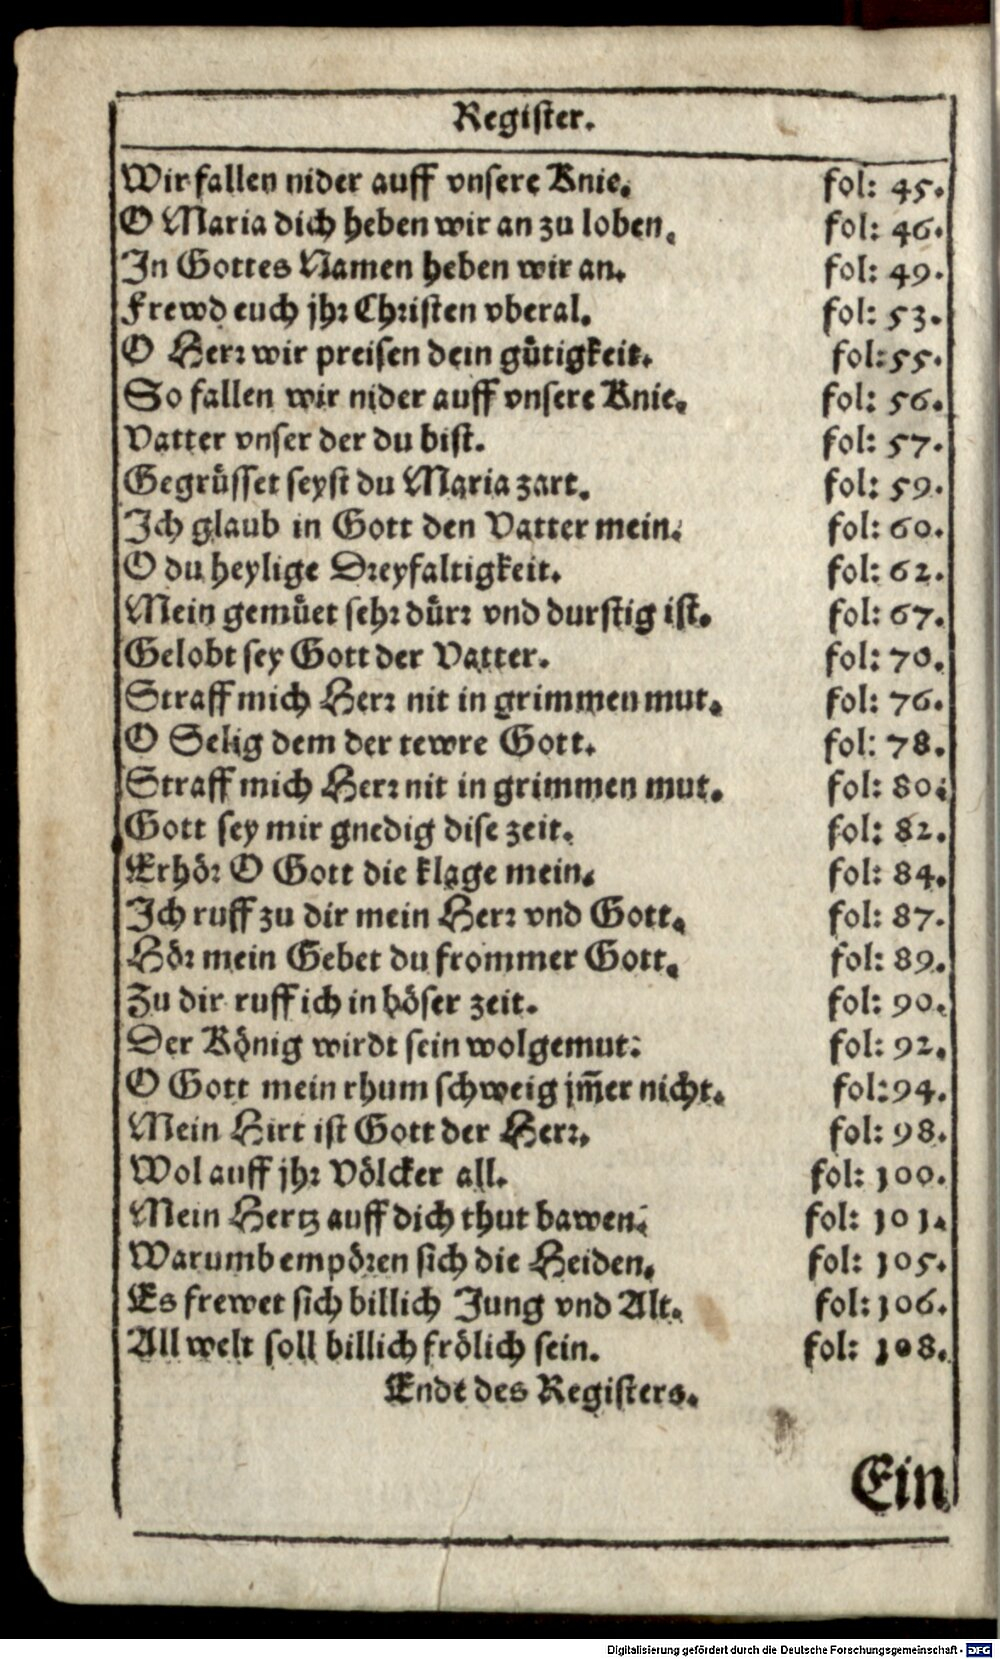 Register.
Wir fallen nider auff vnsere Knie. fol: 45.
O Maria dich heben wir an zu loben. fol: 46.
In Gottes Namen heben wir an. fol: 49.
Frewd euch jhr Christen vberal. fol: 53.
O Herr wir preisen dein gütigkeit. fol: 55.
So fallen wir nider auff vnsere Knie. fol: 56.
Vatter vnser der du bist. fol: 57.
Gegrüsset seyst du Maria zart. fol: 59.
Ich glaub in Gott den Vatter mein. fol: 60.
O du heylige Dreyfaltigkeit. fol: 62.
Mein gemüet sehr dürr vnd durstig ist. fol: 67.
Gelobt sey Gott der Vatter. fol: 70.
Straff mich Herr nit in grimmen mut. fol: 76.
O Selig dem der tewre Gott. fol: 78.
Straff mich Herr nit in grimmen mut. fol: 80.
Gott sey mir gnedig dise zeit. fol: 82.
Erhör O Gott die klage mein. fol: 84.
Ich ruff zu dir mein Herr vnd Gott. fol: 87.
Hör mein Gebet du frommer Gott. fol: 89.
Zu dir ruff ich in höser zeit. fol: 90.
Der König wirdt sein wolgemut: fol: 92.
O Gott mein rhum schweig jm̃er nicht. fol: 94.
Mein Hirt ist Gott der Herr. fol: 98.
Wol auff jhr Völcker all. fol: 100.
Mein Hertz auff dich thut bawen. fol: 101.
Warumb empören sich die Heiden. fol: 105.
Es frewet sich billich Jung vnd Alt. fol: 106.
All welt soll billich frölich sein. fol: 108.
Endt des Registers.
Ein
Digitalisierung gefördert durch die Deutsche Forschungsgemeinschaft - DFG